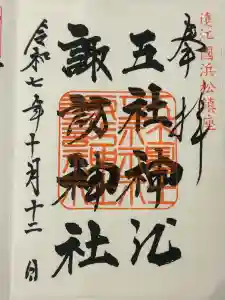 遠江國浜松鎮座
奉拝
五社神社
諏訪神社
令和七年十月十二日